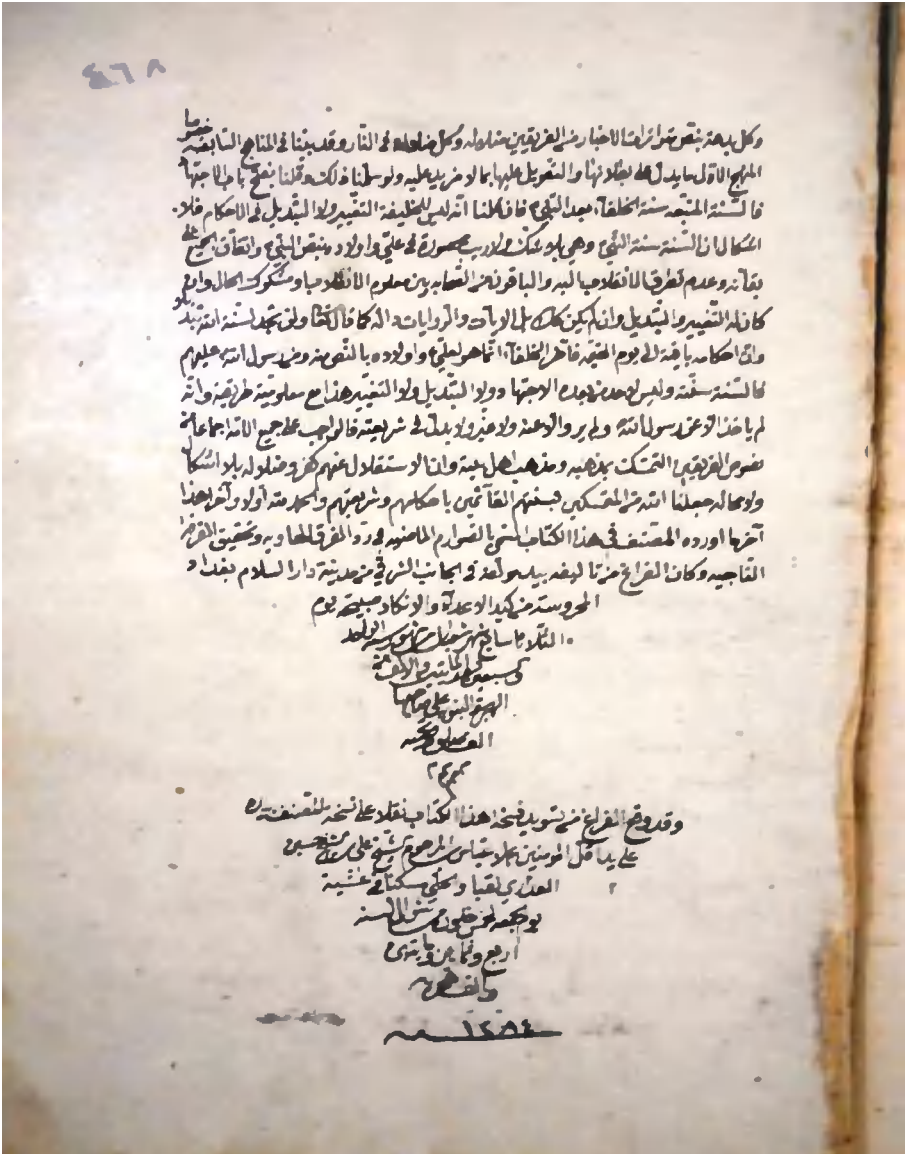 ٤٦٨
وكل بدعة بنص متواترات الاخبار من الفريقين ضلالة وكل ضلالة في النار وقد بينا في المناهج السابقة خصوصا
المنهج الاول ما يدل على بطلانها والتعويل عليها بما لا مزيد عليه ولو سلمنا ذلك وقلنا بفتح باب الاجتهاد
فالسنة المتبعة سنة الخلفاء بعد النبي فان قلنا انه ليس للخليفة التغيير ولا التبديل في الاحكام فلا
اشكال ان السنة سنة النبي وهي بلا شك ولا ريب محصورة في علي واولاده بنص النبي واتفاق الجميع على
بقائه وعدم تطرق الانقلاب اليه والباقون من الصحابة بين معلوم الانقلاب او مشكوك الحال وان
كان له التغيير والتبديل وان لم يكن كذلك بل الايات والروايات دالة كما قال تعالى ولن تجد لسنة الله تبديلا
وان احكامه باقية الى يوم القيمة فآخر الخلفاء انما هو لعلي واولاده بالنص منه ومن رسول الله عليهم
فالسنة سنته وليس لاحد من بعده الاجتهاد ولا التبديل ولا التغيير هذا مع معلومية طريقته وانه
لم ياخذ الا عن رسول الله ولم يرو الا عنه ولا غير ولا بدل في شريعته فالواجب على جميع الامة اجماعا
بنصوص الفريقين التمسك بمذهبه ومذهب اهل بيته وان الاستقلال عنهم كفر وضلالة بلا اشكال
ولا محالة جعلنا الله من المتمسكين بسنتهم القائمين باحكامهم وشريعتهم والحمد لله اولا وآخرا هذا
آخر ما اورده المصنف في هذا الكتاب المسمى بالصوارم الماضية في رد الفرق الهاوية وتحقيق الفرقة
الناجية وكان الفراغ من تاليفه بيد مؤلفه في الجانب الشرقي من مدينة دار السلام بغداد
المحروسة من كيد الاعداء والانكاد صبيحة يوم
الثلاثا سابع شهر شوال من شهور سنة الواحد
وسبعين بعد المايتين والالف من
الهجرة النبوية على صاحبها
الف سلام وتحية
وقد وقع الفراغ من تسويد نسخة هذا الكتاب نقلا على نسخة المصنف
على يد اقل المؤمنين عباس المرحوم الشيخ علي بن الشيخ حسين
العذاري لقبا والحلي مسكنا في عشية
يوم الجمعة لخمس خلون من شوال السنة
اربع وثمانين ومايتين
والف هجرية
١٢٨٤